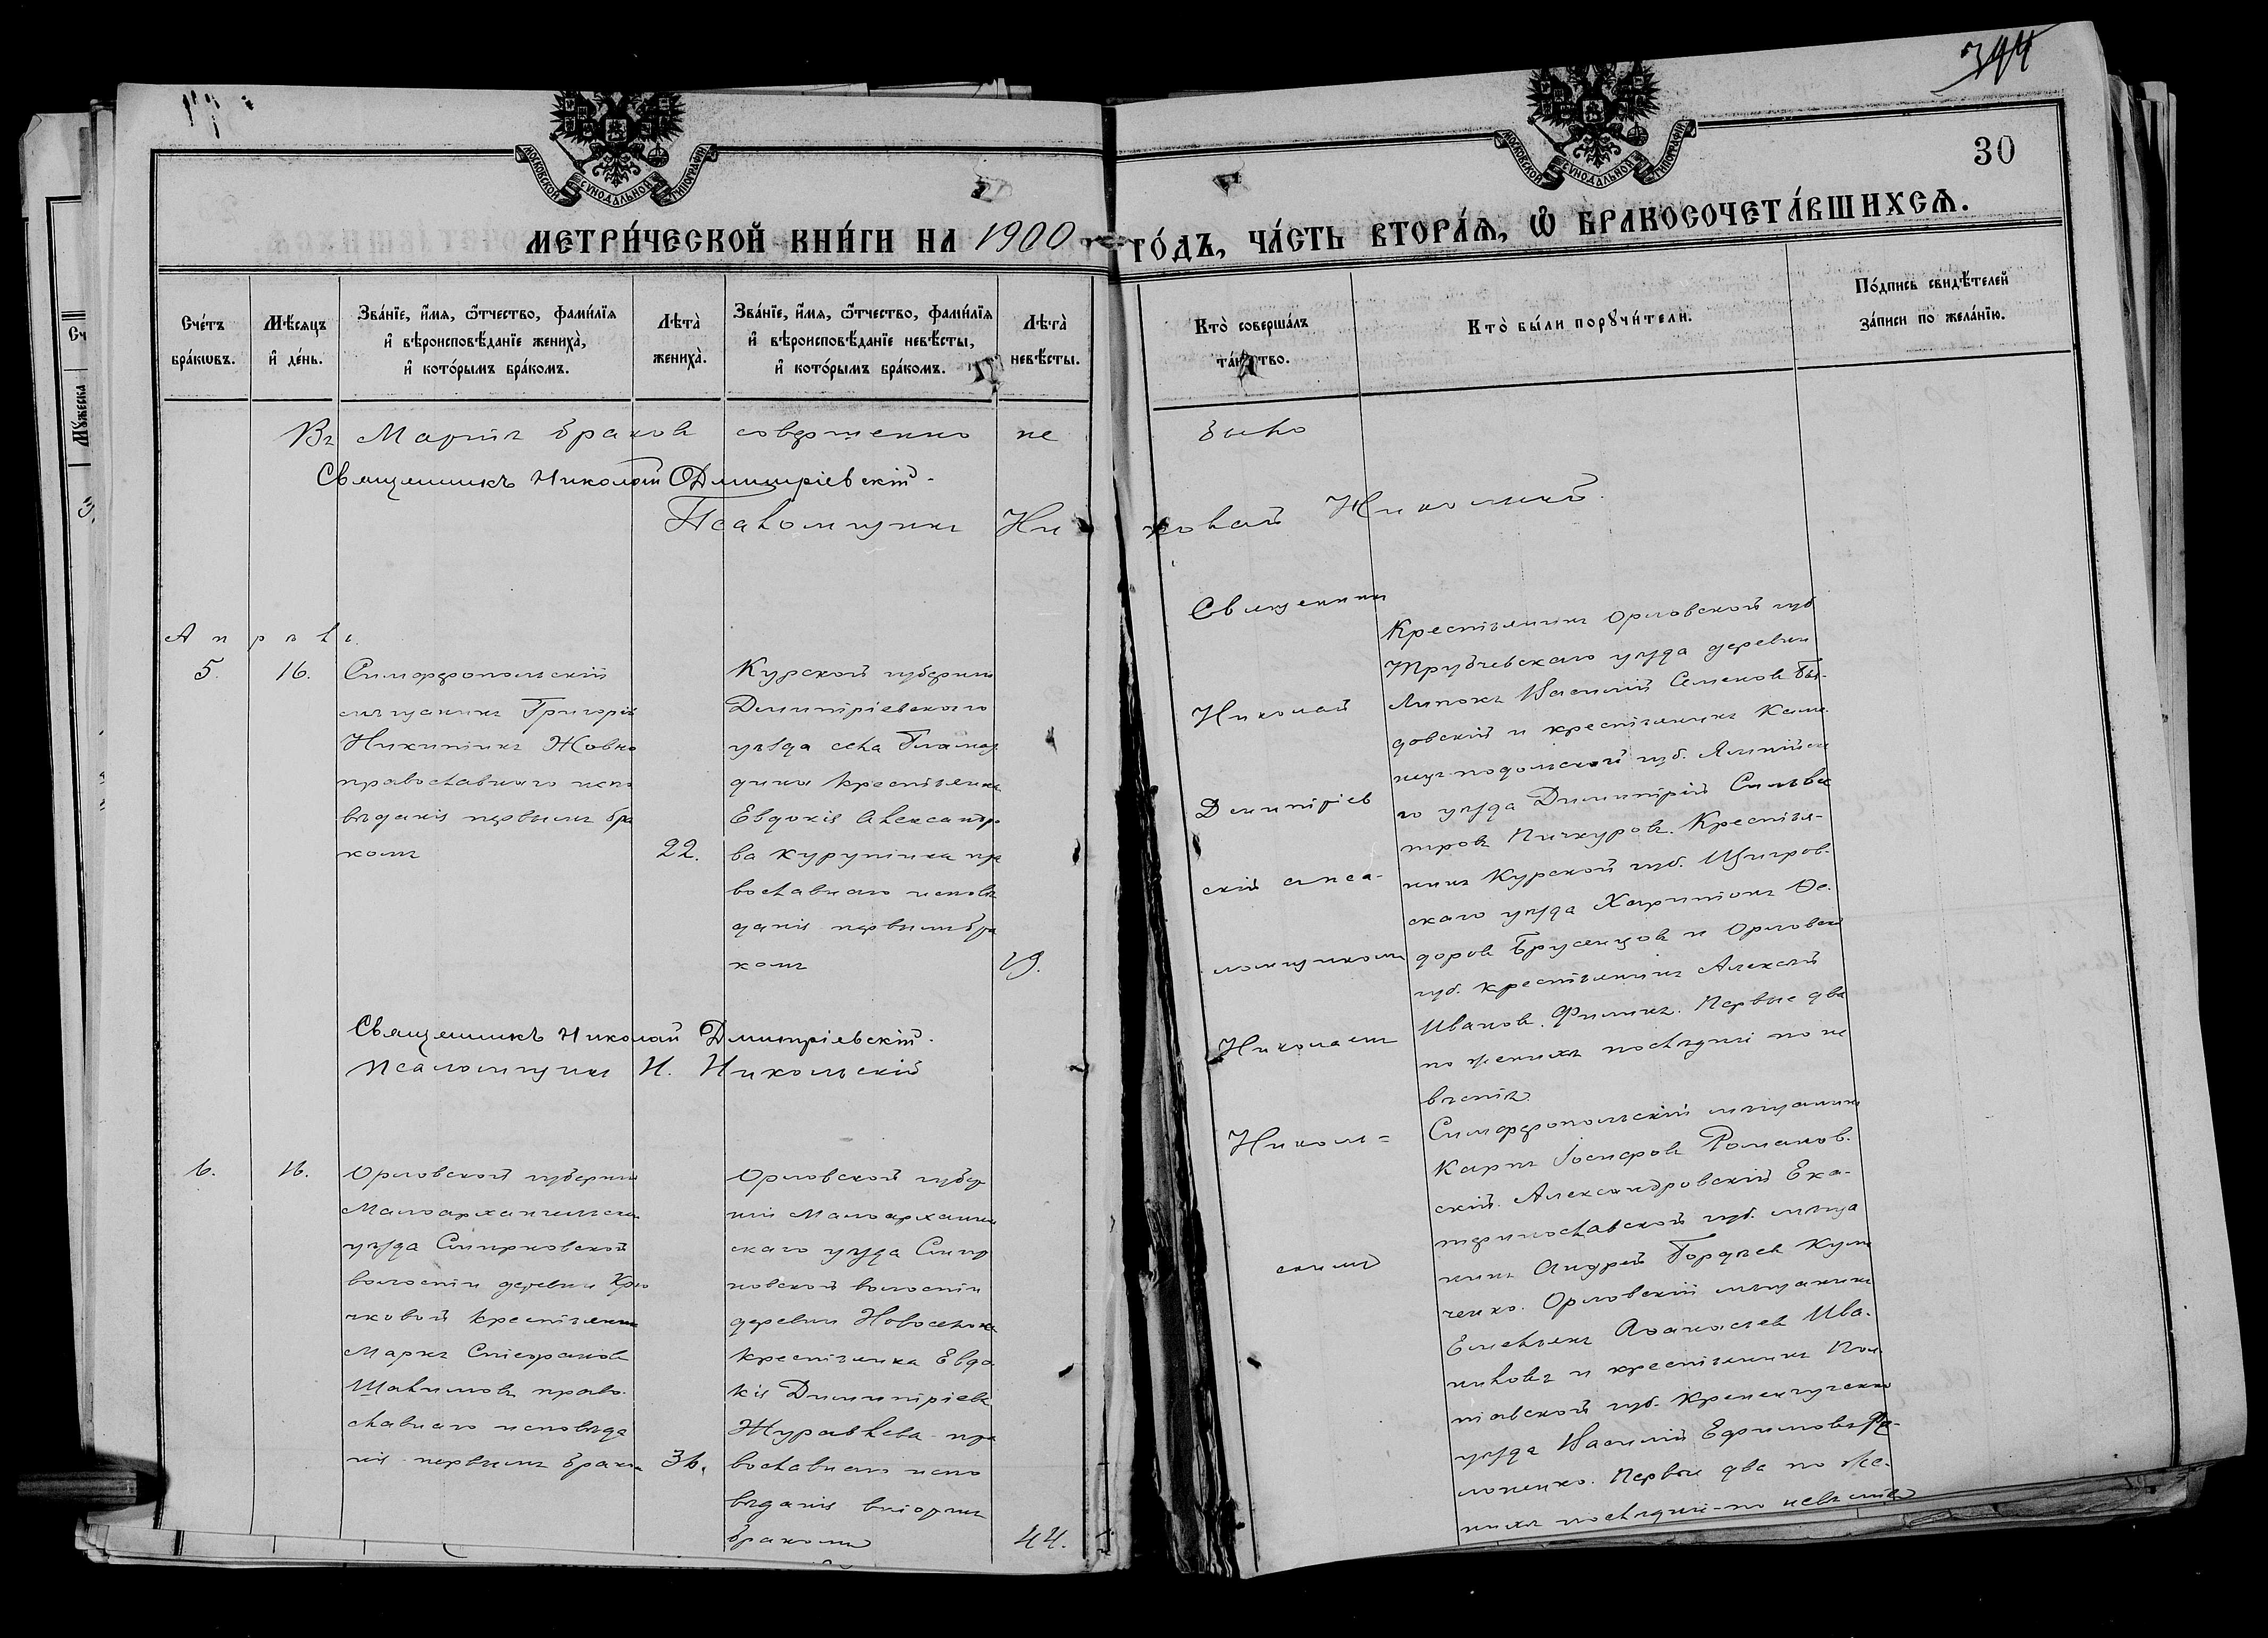 394
30
МОСКОВСКОЙ СѴНОДАЛЬНОЙ ТИПОГРАФІИ
МОСКОВСКОЙ СѴНОДАЛЬНОЙ ТИПОГРАФІИ
МЕТРИ́ЧЕСКОЙ КНИ́ГИ НА 1900 ГО́ДЪ, ЧА́СТЬ ВТОРА́Ѧ, Ѽ БРАКОСОЧЕТА́ВШИХСѦ.
Сче́тъ бра́кѡвъ.
Мѣ́сяцъ и҆ де́нь.
Зва́нїе, и҆́мя, ѻ҆́тчество, фами́лїя и҆ вѣроисповѣ́данїе жениха̀, и҆ кото́рымъ бра́комъ.
Лѣта̀ жениха̀.
Зва́нїе, и҆́мя, ѻ҆́тчество, фами́лїя и҆ вѣроисповѣ́данїе невѣ́сты, и҆ кото́рымъ бра́комъ.
Лѣта̀ невѣ́сты.
Кто̀ соверша́лъ та́инство.
Кто̀ бы́ли порꙋчи́тели.
По́дпись свидѣ́телей за́писи по жела́нїю.
Въ Мартѣ браков совершенно не было
Священникъ Николай Димитріевскій.
Псаломщикъ Николай Никольскій.
Апрѣль.
5.
16.
Симферопольскій
мѣщанинъ Григорій
Никитинъ Жовно
православнаго испо
вѣданія первымъ бра
комъ
22.
Курской губерніи
Димитріевскаго
уѣзда села
крестьянка
Евдокія Александро
ва Курутина пра
вославнаго исповѣ
данія первымъ бра
комъ
19.
Священникъ
Николай
Димитріев
скій съ пса-
ломщикомъ
Николаемъ
Николь=
скимъ
Крестьянинъ Орловской губ
Трубчевскаго уѣзда деревни
Липокъ Василій Семенов Бы-
довскій и крестьянинъ Каме
нецъ-подольской губ. Ямпійска
го уѣзда Димитрій Сильве
стровъ Пичкуровъ. Крестья-
нинъ Курской губ. Щигров-
скаго уѣзда Харитонъ Ѳе-
доров Брусенцов и Орловской
губ. крестьянинъ Алексѣй
Иванов. Филинъ. Первые два
по женихѣ послѣдніе по не
вѣстѣ.
Священникъ Николай Димитріевскій.
Псаломщикъ Н. Никольскій
6.
16.
Орловской губерніи
Малоархангельска
уѣзда Смирновской
волости деревни Крю
чковой крестьянинъ
Маркъ Стефанов
Шалимовъ право-
славнаго исповѣда
нія первымъ браком
36.
Орловской губер
ніи Малоархангель
скаго уѣзда Смир
новской волости
деревни Новоселок
крестьянка Евдо
кія Димитріева
Журавлева пра
вославнаго испо
вѣданія вторымъ
бракомъ
44.
Симферопольскій мѣщанинъ
Карпъ Іосифовъ Романов-
скій. Александровскій Ека-
теринославской губ. мѣща
нинъ Андрей Гордѣев Кули
ченко. Орловскій мѣщанинъ
Емельянъ Аѳанасьев Ива-
никовъ и крестьянинъ Пол-
тавской губ. Кременчугскаго
уѣзда Василій Ефимовъ Фе-
лоненко. Первые два по же-
нихѣ послѣдніе-по невѣстѣ